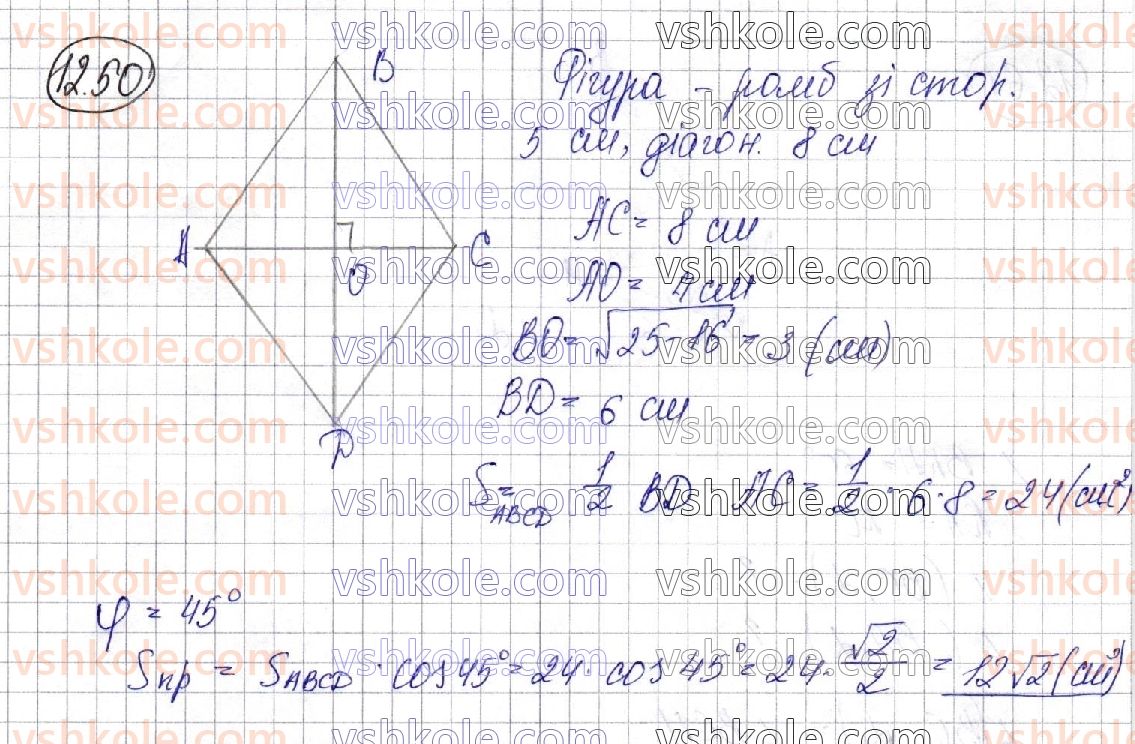 12.50
B
Фігура - ромб зі стор.
5 см, діагон. 8 см
A
C
O
D
AC = 8 см
AO = 4 см
BO = √25-16 = 3 (см)
BD = 6 см
S ABCD = 1/2 BD AC = 1/2 · 6 · 8 = 24 (см²)
φ = 45°
Sпр = SABCD · cos 45° = 24 · cos 45° = 24 · √2/2 = 12√2 (см²)
vshkole.com